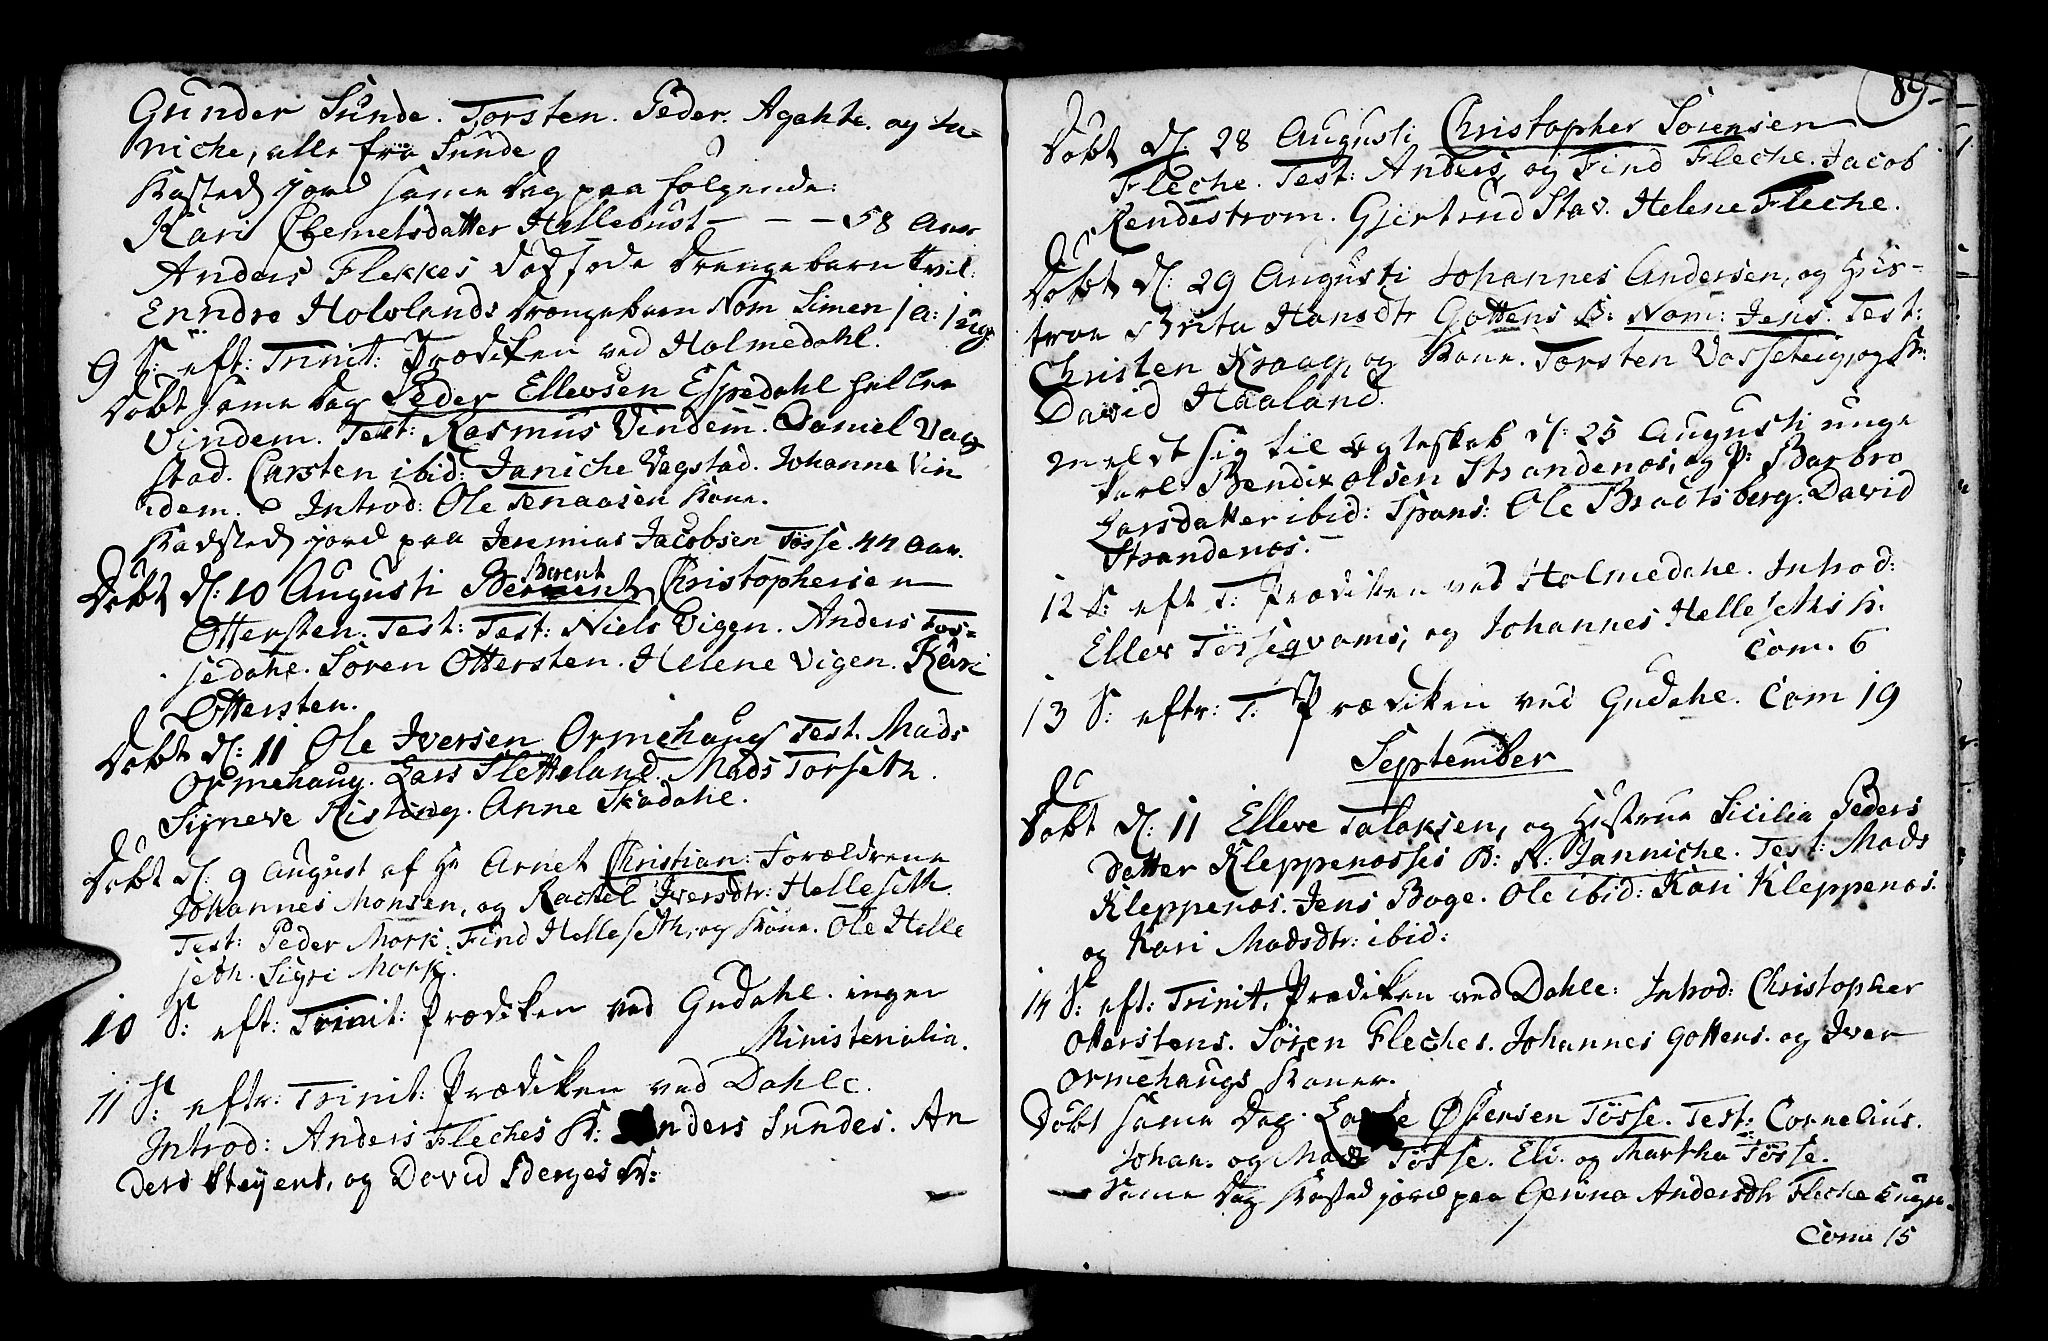 Gunder Sunde. Torsten. Peder. Agahte. og Ja-
niche, alle fra Sunde
Kasted jord same Dag paa folgende:
Kari Clemetsdatter Hellebust - - - 58 Aar
Anders Flekkes dødføde Drengebarn tvil:
Enndre Holvlands Drengebarn Nom Simen 1 a: 1 ug:
9 S: eft: Trinit: Prædiken ved Holmedahl.
Døbt same Dag Peder Ellevsen Espedahl heller
Vindem. Test: Rasmus Vindem. Daniel Vag
stad. Carsten ibid: Janiche Vagstad. Johanne Vin
dem. Introd: Ole Tenaasen Kone.
Kadsted jord paa Jeremias Jacobsen Tøsse. 44 Aar.
Døbt d: 10 Augusti Berent Christophersen
Ottersten. Test: Test: Niels Vigen. Anders Fos-
sedahl. Søren Ottersten. Helene Vigen. Kari
Ottersten.
Døbt d: 11 Ole Iversen Ormehaug Test. Mads
Ormehaug. Lars Sletteland. Mads Torseth.
Signeve Risting. Anne Skadahl.
Døbt d: 9 August af Hr Arnet Christian: Forældrene
Johannes Monsen, og Rachel Iversdtr: Helleseth.
Test: Peder Mork. Find Helleseth, og Kone. Ole Helle
seth. Sigri Mork.
10 S: eft: Trinit: Prædiken ved Gudahl. ingen
Ministerialia.
11 S: eftr: Trinit: Prædiken ved Dahle.
Introd: Anders Fleches K: Anders Sundes. An
ders Steyens, og David Berges K:
89
Døbt d: 28 Augusti Christopher Sørensen
Fleche. Test: Anders og Find Fleche. Jacob
Rendestrom. Gjertrud Stav. Helene Fleche.
Døbt d: 29 Augusti Johannes Andersen, og Hus-
troe Brita Hansdtr Gottens B: Nom: Jens. Test:
Christen Kraag, og Kone. Torsten Vasseteig, og K:
David Haaland.
meldt sig til Egteskab d: 25 Augusti unge
Karl Bendix Olsen Strandenæs, og P: Barbro
Larsdatter ibid: Spons: Ole Bradtsberg. David
Strandenæs.
12 S: eft T: Prædiken ved Holmedahl. Introd:
Ellev Tøsseqvams, og Johannes Helleseths K.
Com. 6
13 S: eftr: T. Prædiken ved Gudahl. Com 19
September
Døbt d: 11 Elleve Talaksen, og Hustrue Sicilia Peders
detter Kleppenæsses B: N: Janniche. Test: Mads
Kleppenæs. Jens Boge. Ole ibid: Kari Kleppenæs.
og Kari Madsdtr: ibid:
14 S: eft: Trinit. Prædiken ved Dahle: Introd: Christopher
Otterstens. Søren Fleches. Johannes Gottens. og Iver
Ormehaugs Koner.
Døbt same Dag Østensen Tøsse. Test: Cornelius.
Johan. og Mads Tøsse. Eli. og Martha Tøsse.
Same Dag Kasted jord paa Gerina Andersdtr Fleche
Com 15